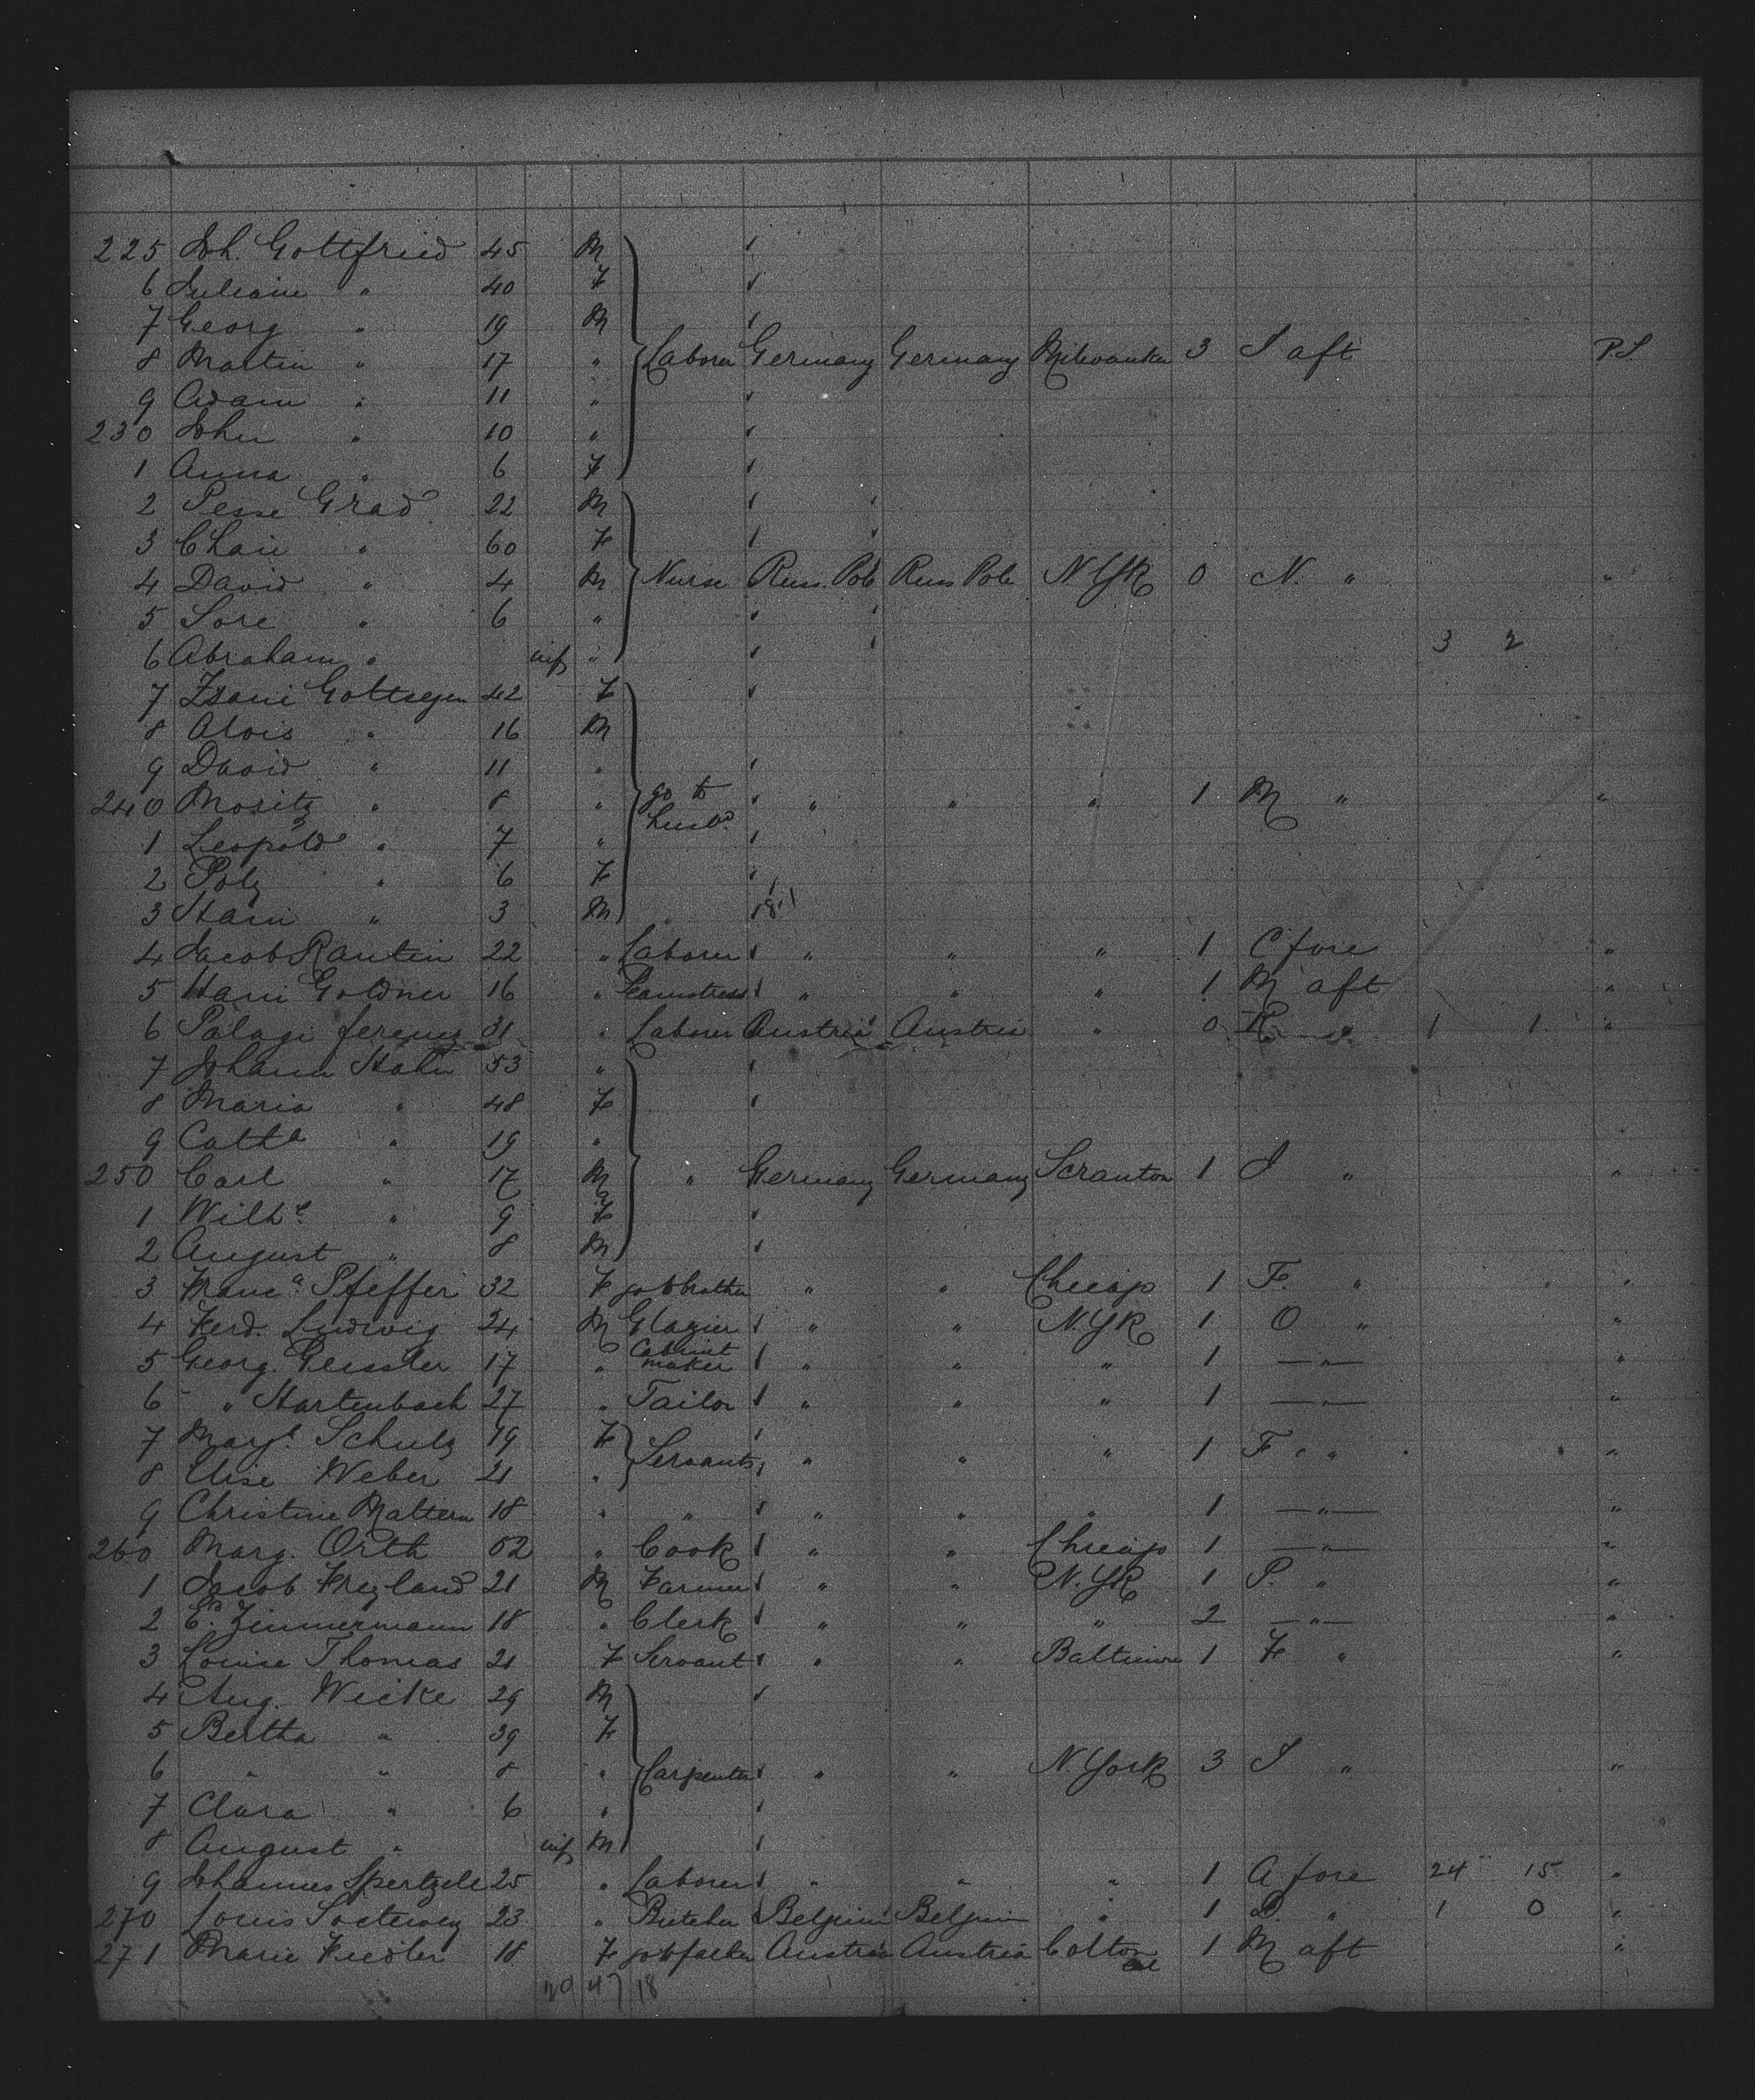 225 Joh. Gottfried 45 M
6 Juliane " 40 F
7 Georg " 19 M
8 Martin " 17 " Laborer Germany Germany Milwaukee 3 I aft P.S.
9 Adam " 11 "
230 John " 10 "
1 Anna " 6 F
2 Pesse Grad 22 M
3 Chaie " 60 F
4 David " 4 M Nurse Russ. Pol Russ Pol N Yk 0 N. " "
5 Sore " 6 "
6 Abraham " inf " 3 2
7 Gottsegen 42 F
8 Alois " 16 M
9 David " 11 "
240 Moritz " 8 " go to husbd. " " " 1 M " "
1 Leopold " 7 "
2 Poly " 6 F
3 Ham " 3 M
4 Jacob Rantin 22 " Laborer " " " 1 C fore "
5 Hani Goldner 16 " " " " 1 M aft "
6 Palagi ferencz 31 " Laborer Austria Austria " 0 1 1 "
7 Johann Hahn 53 "
8 Maria " 48 F
9 Catha " 19 "
250 Carl " 17 M " Germany Germany Scranton 1 I " "
1 Wilhe. " 9 F
2 August " 8 M
3 Franca Pfeffer 32 F " " Chicago 1 F. " "
4 Ferd. Ludwig 24 M Glazier " " N. Yk 1 O " "
5 Georg. Geissler 17 " Cabinet maker " " " 1 — " — "
6 " Hartenbach 27 " Tailor " " " 1 — " — "
7 Margt. Schulz 19 F Servants " " " 1 F " " "
8 Elise Weber 21 "
9 Christine Mattern 18 " " " " " 1 — " — "
260 Marg. Orth 52 " Cook " " Chicago 1 — " — "
1 Jacob Freyland 21 M Farmer " " N. Yk 1 P. " "
2 Ed. Zimmermann 18 " Clerk " " " 2 — " — "
3 Louise Thomas 21 F Servant " " Baltimore 1 F " "
4 Aug. Wicke 29 M
5 Bertha " 39 F
6 " " 8 " Carpenter " " N. York 3 I " "
7 Clara " 6 "
8 August " inf M
9 Johannes Spertzele 25 " Laborer " " " 1 A fore 24 15 "
270 Louis 23 " Butcher Belgium Belgium " 1 D. " 1 0 "
271 Marie Fiedler 18 F Austria Austria 1 M aft "
20 47 18